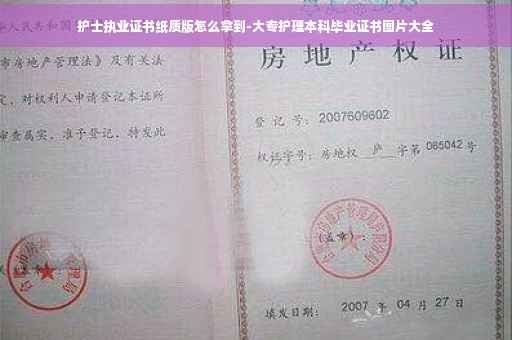 护士执业证书纸质版怎么拿到-大专护理本科毕业证书图片大全
华人民共和国
市房地产管理法》及有关法
定，对权利人申请登记本证所
审查属实，准予登记，特发此
房地产权证
登记号：2007609602
权证字号：房地权 庐 字第 085042 号
(盖章)：
填发日期：2007 年 04 月 27 日